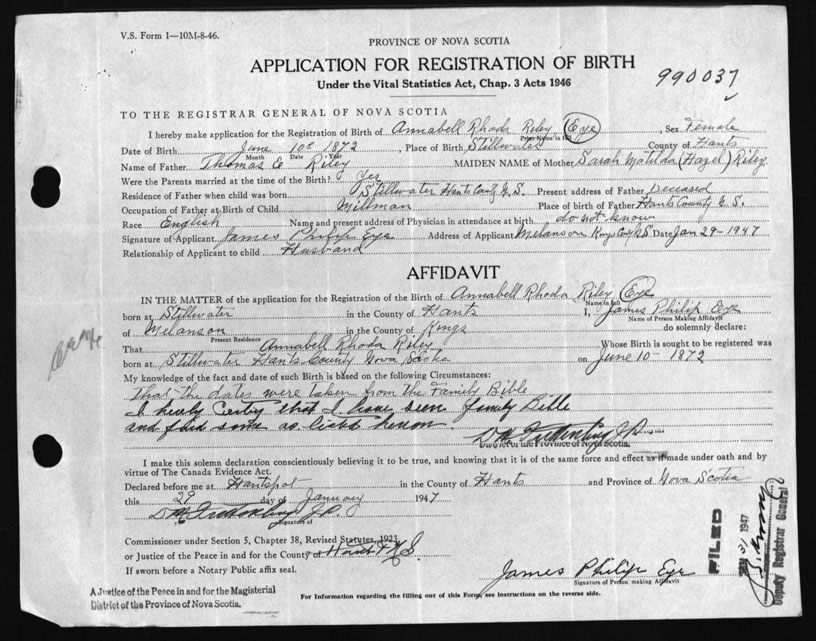 V.S. Form 1—10M-8-46.
PROVINCE OF NOVA SCOTIA
APPLICATION FOR REGISTRATION OF BIRTH
990037
Under the Vital Statistics Act, Chap. 3 Acts 1946
TO THE REGISTRAR GENERAL OF NOVA SCOTIA
I hereby make application for the Registration of Birth of Annabell Rhoda Riley (Eye), Sex Female
Print Name in full
Date of Birth June 10 1872, Place of Birth Stillwater County of Hants
Month Date Year
Name of Father Thomas E Riley MAIDEN NAME of Mother Sarah Matilda (Hazel) Riley
Were the Parents married at the time of Birth? Yes
Residence of Father when child was born Stillwater Hants County N.S. Present address of Father Deceased
Occupation of Father at Birth of Child Millman Place of birth of Father Hants County N.S.
Race English Name and present address of Physician in attendance at birth do not know
Signature of Applicant James Philip Eye Address of Applicant Melanson Kings Co N.S Date Jan 29-1947
Relationship of Applicant to child Husband
AFFIDAVIT
IN THE MATTER of the application for the Registration of the Birth of Annabell Rhoda Riley (Eye
Name in full
born at Stillwater in the County of Hants I, James Philip Eye
Name of Person Making Affidavit
of Melanson in the County of Kings do solemnly declare:
Present Residence
That Annabell Rhoda Riley Whose Birth is sought to be registered was
born at Stillwater Hants County Nova Scotia on June 10-1872
My knowledge of the fact and date of such Birth is based on the following Circumstances:
That the dates were taken from the Family Bible
I hereby Certify that I have seen family Bible
and find same as listed hereon
District of the Province of Nova Scotia.
I make this solemn declaration conscientiously believing it to be true, and knowing that it is of the same force and effect as if made under oath and by
virtue of The Canada Evidence Act.
Declared before me at Hantsport in the County of Hants and Province of Nova Scotia
this 29 day of January 1947
Signature of
Commissioner under Section 5, Chapter 38, Revised Statutes, 1923
or Justice of the Peace in and for the County of Hants N.S.
If sworn before a Notary Public affix seal.
James Philip Eye
Signature of Person making Affidavit
For Information regarding the filling out of this Form, see instructions on the reverse side.
A Justice of the Peace in and for the Magisterial
District of the Province of Nova Scotia.
FILED
JAN 31 1947
Deputy Registrar General